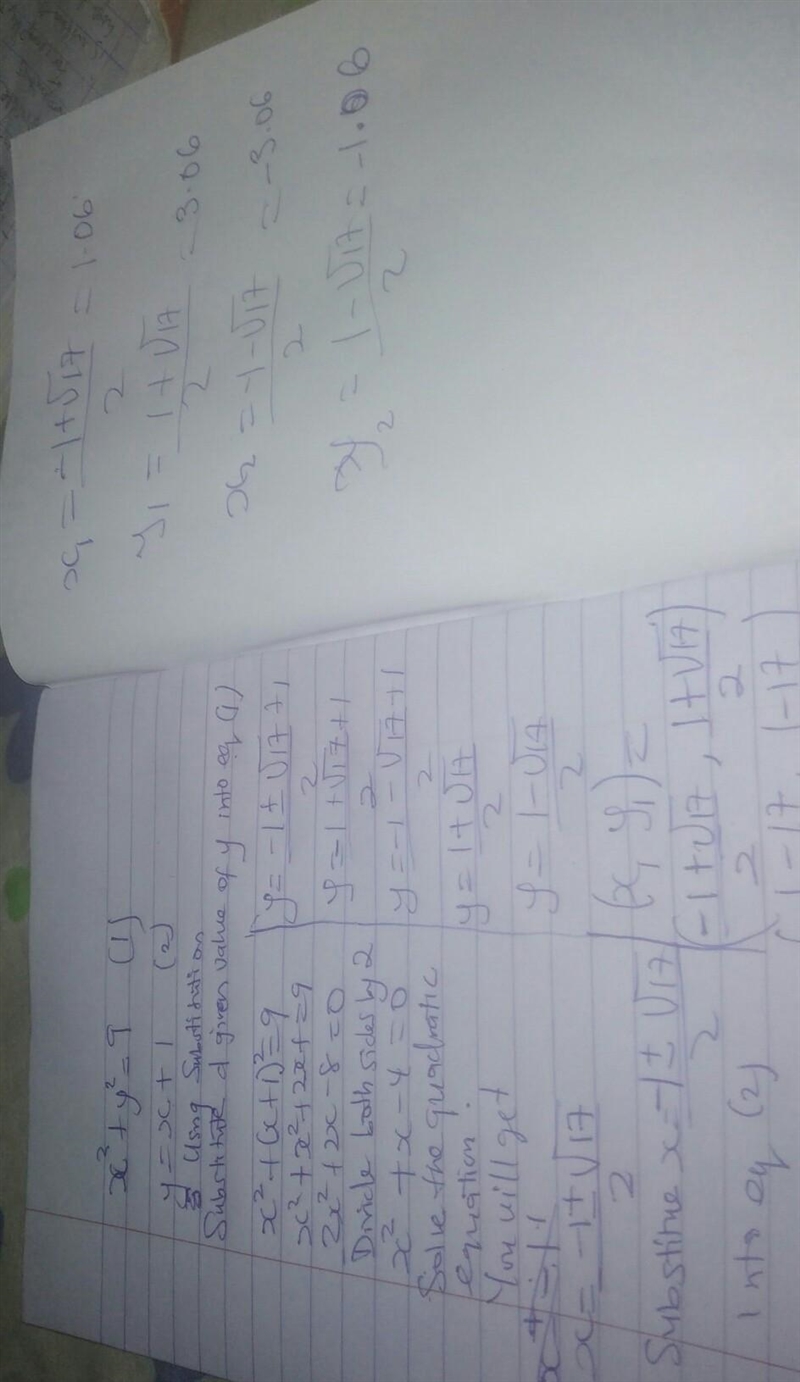 x² + y² = 9 (1)
y = x + 1 (2)
Using Substitution
Substitute d given value of y into eq (1)
x² + (x+1)² = 9
x² + x² + 2x + = 9
2x² + 2x - 8 = 0
Divide both sides by 2
x² + x - 4 = 0
Solve the quadratic
equation.
You will get
x = -1 ± √17 / 2
Substitue x = -1 ± √17 / 2
into eq (2)
y = -1 ± √17 + 1 / 2
y = 1 + √17 + 1 / 2
y = -1 - √17 + 1 / 2
y = 1 + √17 / 2
y = 1 - √17 / 2
(x, y₁) =
(-1 + √17 / 2, 1 + √17 / 2)
(1 - 17, 1 - 17)
x₁ = -1 + √17 / 2 = 1.06
y₁ = 1 + √17 / 2 = 3.06
x₂ = -1 - √17 / 2 = -3.06
y₂ = 1 - √17 / 2 = -1.06